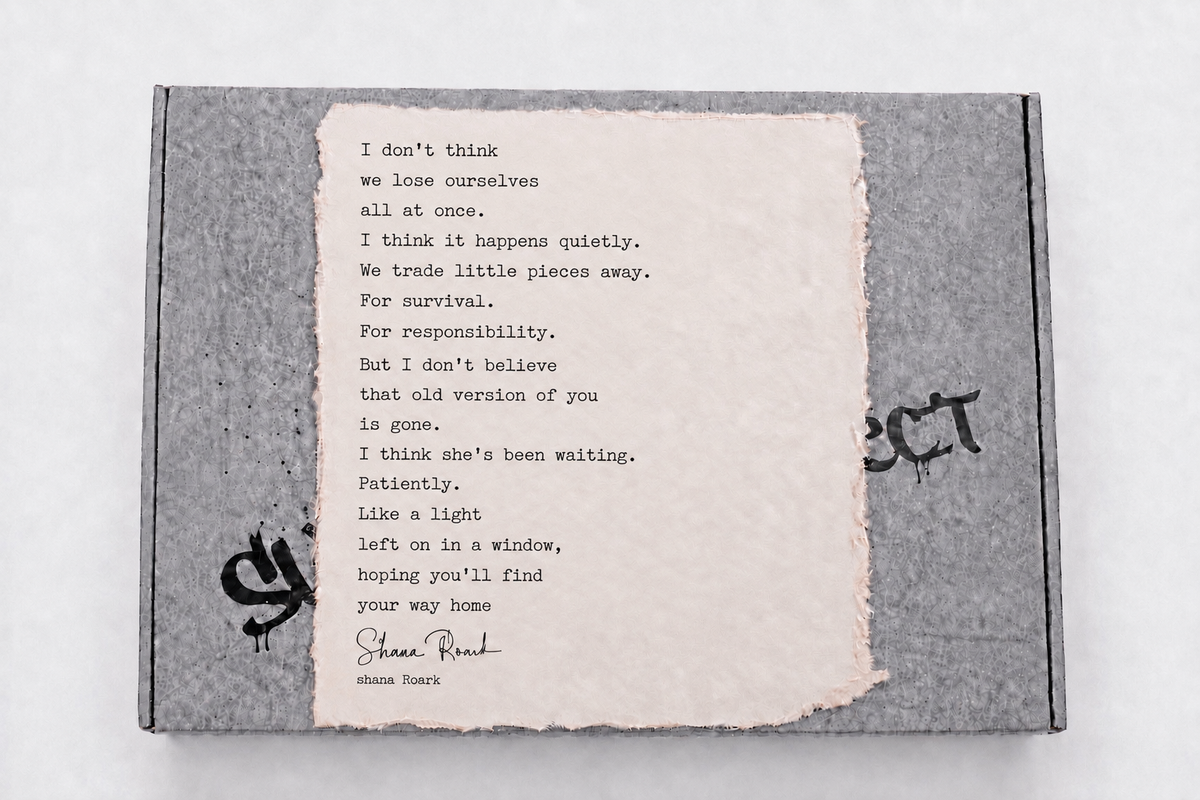 I don't think
we lose ourselves
all at once.
I think it happens quietly.
We trade little pieces away.
For survival.
For responsibility.
But I don't believe
that old version of you
is gone.
I think she's been waiting.
Patiently.
Like a light
left on in a window,
hoping you'll find
your way home
Shana Roark
shana Roark